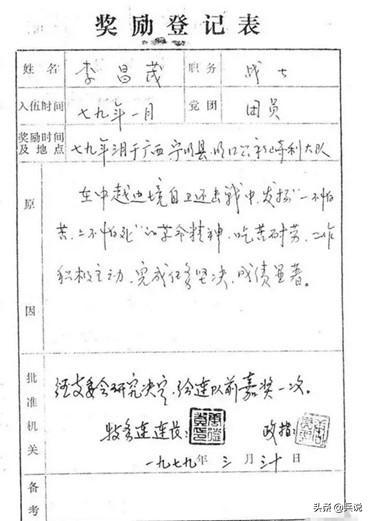 奖励登记表
姓名 李昌茂 职务 战士
入伍时间 七九年一月 党团 团员
奖励时间及地点 七九年三月于广西宁明县,明口公社峙利大队
原因
在中越边境自卫还击战中,发扬"一不怕
苦、二不怕死"的革命精神,吃苦耐劳,工作
积极主动,完成任务坚决,成绩显著。
批准机关
经支委会研究决定,给连队前嘉奖一次。
特务连连长: 政指:
一九七九年 三月三十日
备考
头条@兵说